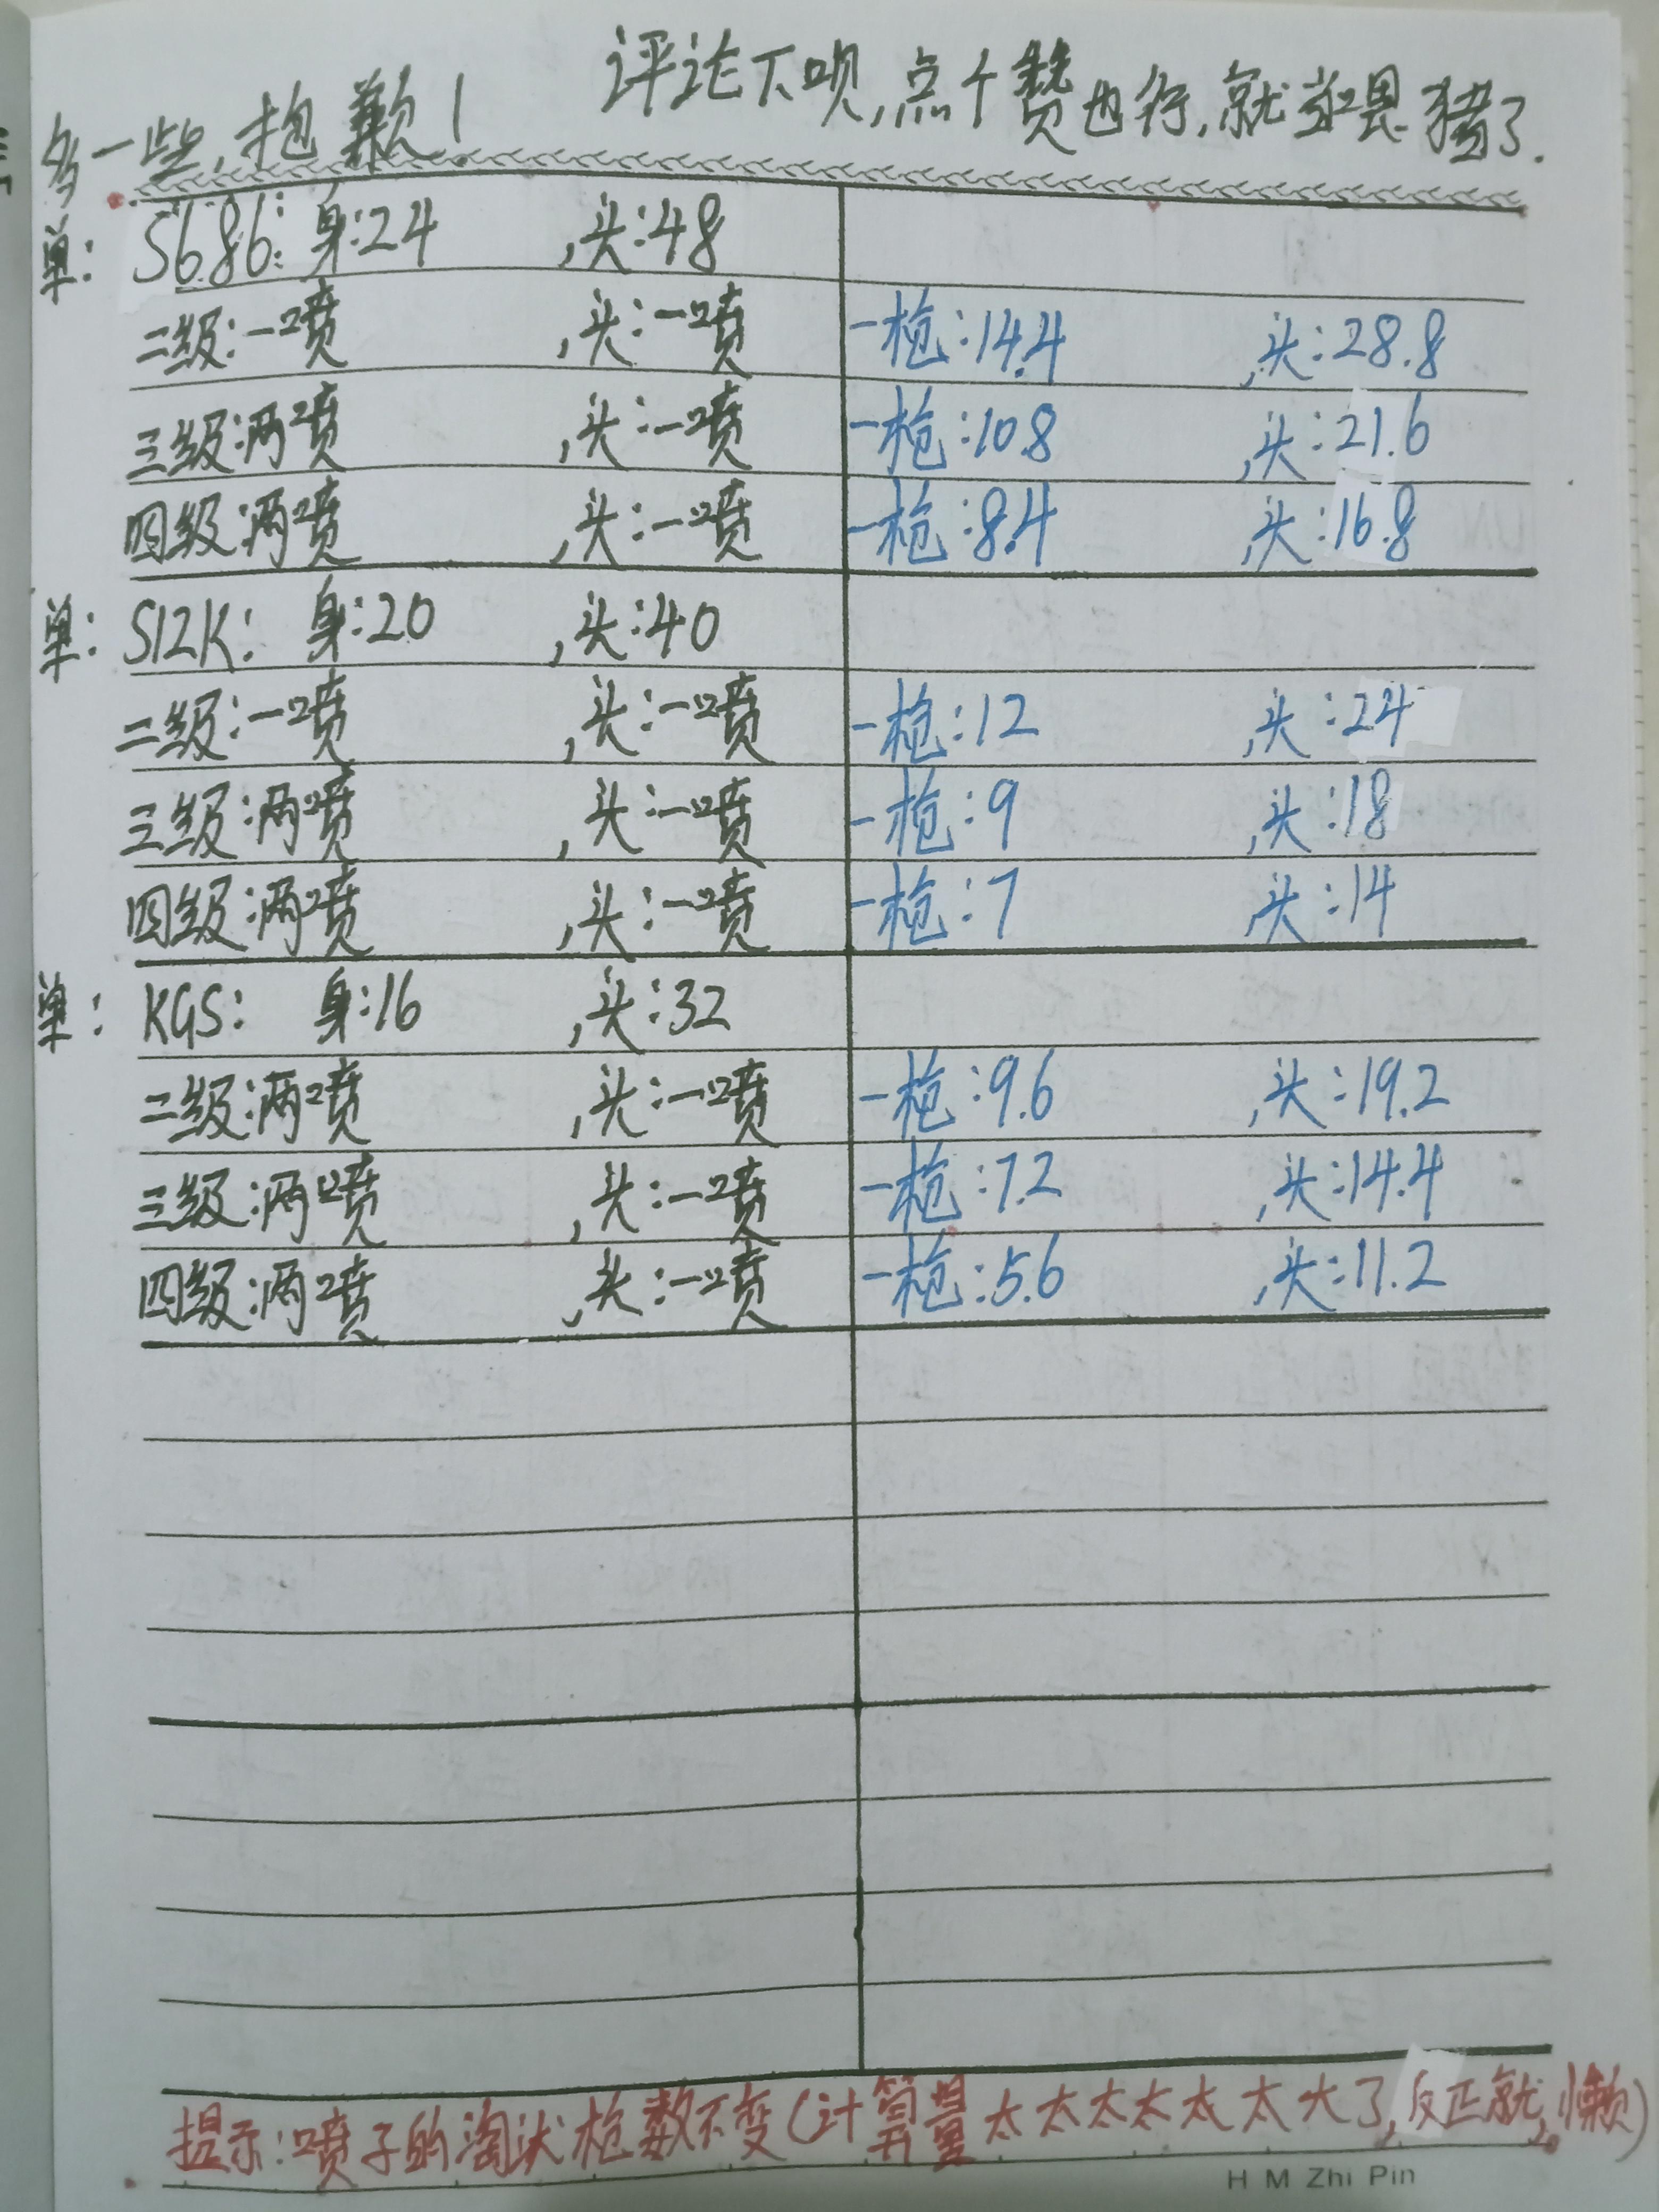 评论下呗,点个赞也行,就当喂猪了.
多一些,抱歉!
单: S686: 身:24 ,头:48
二级:一喷 ,头:一喷 一枪:14.4 ,头:28.8
三级:两喷 ,头:一喷 一枪:10.8 ,头:21.6
四级:两喷 ,头:一喷 一枪:8.4 ,头:16.8
单: S12K: 身:20 ,头:40
二级:一喷 ,头:一喷 一枪:12 ,头:24
三级:两喷 ,头:一喷 一枪:9 ,头:18
四级:两喷 ,头:一喷 一枪:7 头:14
单: KGS: 身:16 ,头:32
二级:两喷 ,头:一喷 一枪:9.6 ,头:19.2
三级:两喷 ,头:一喷 一枪:7.2 ,头:14.4
四级:两喷 ,头:一喷 一枪:5.6 ,头:11.2
提示:喷子的淘汰枪数不变(计算量太太太太太太大了,反正就,懒)
H M Zhi Pin